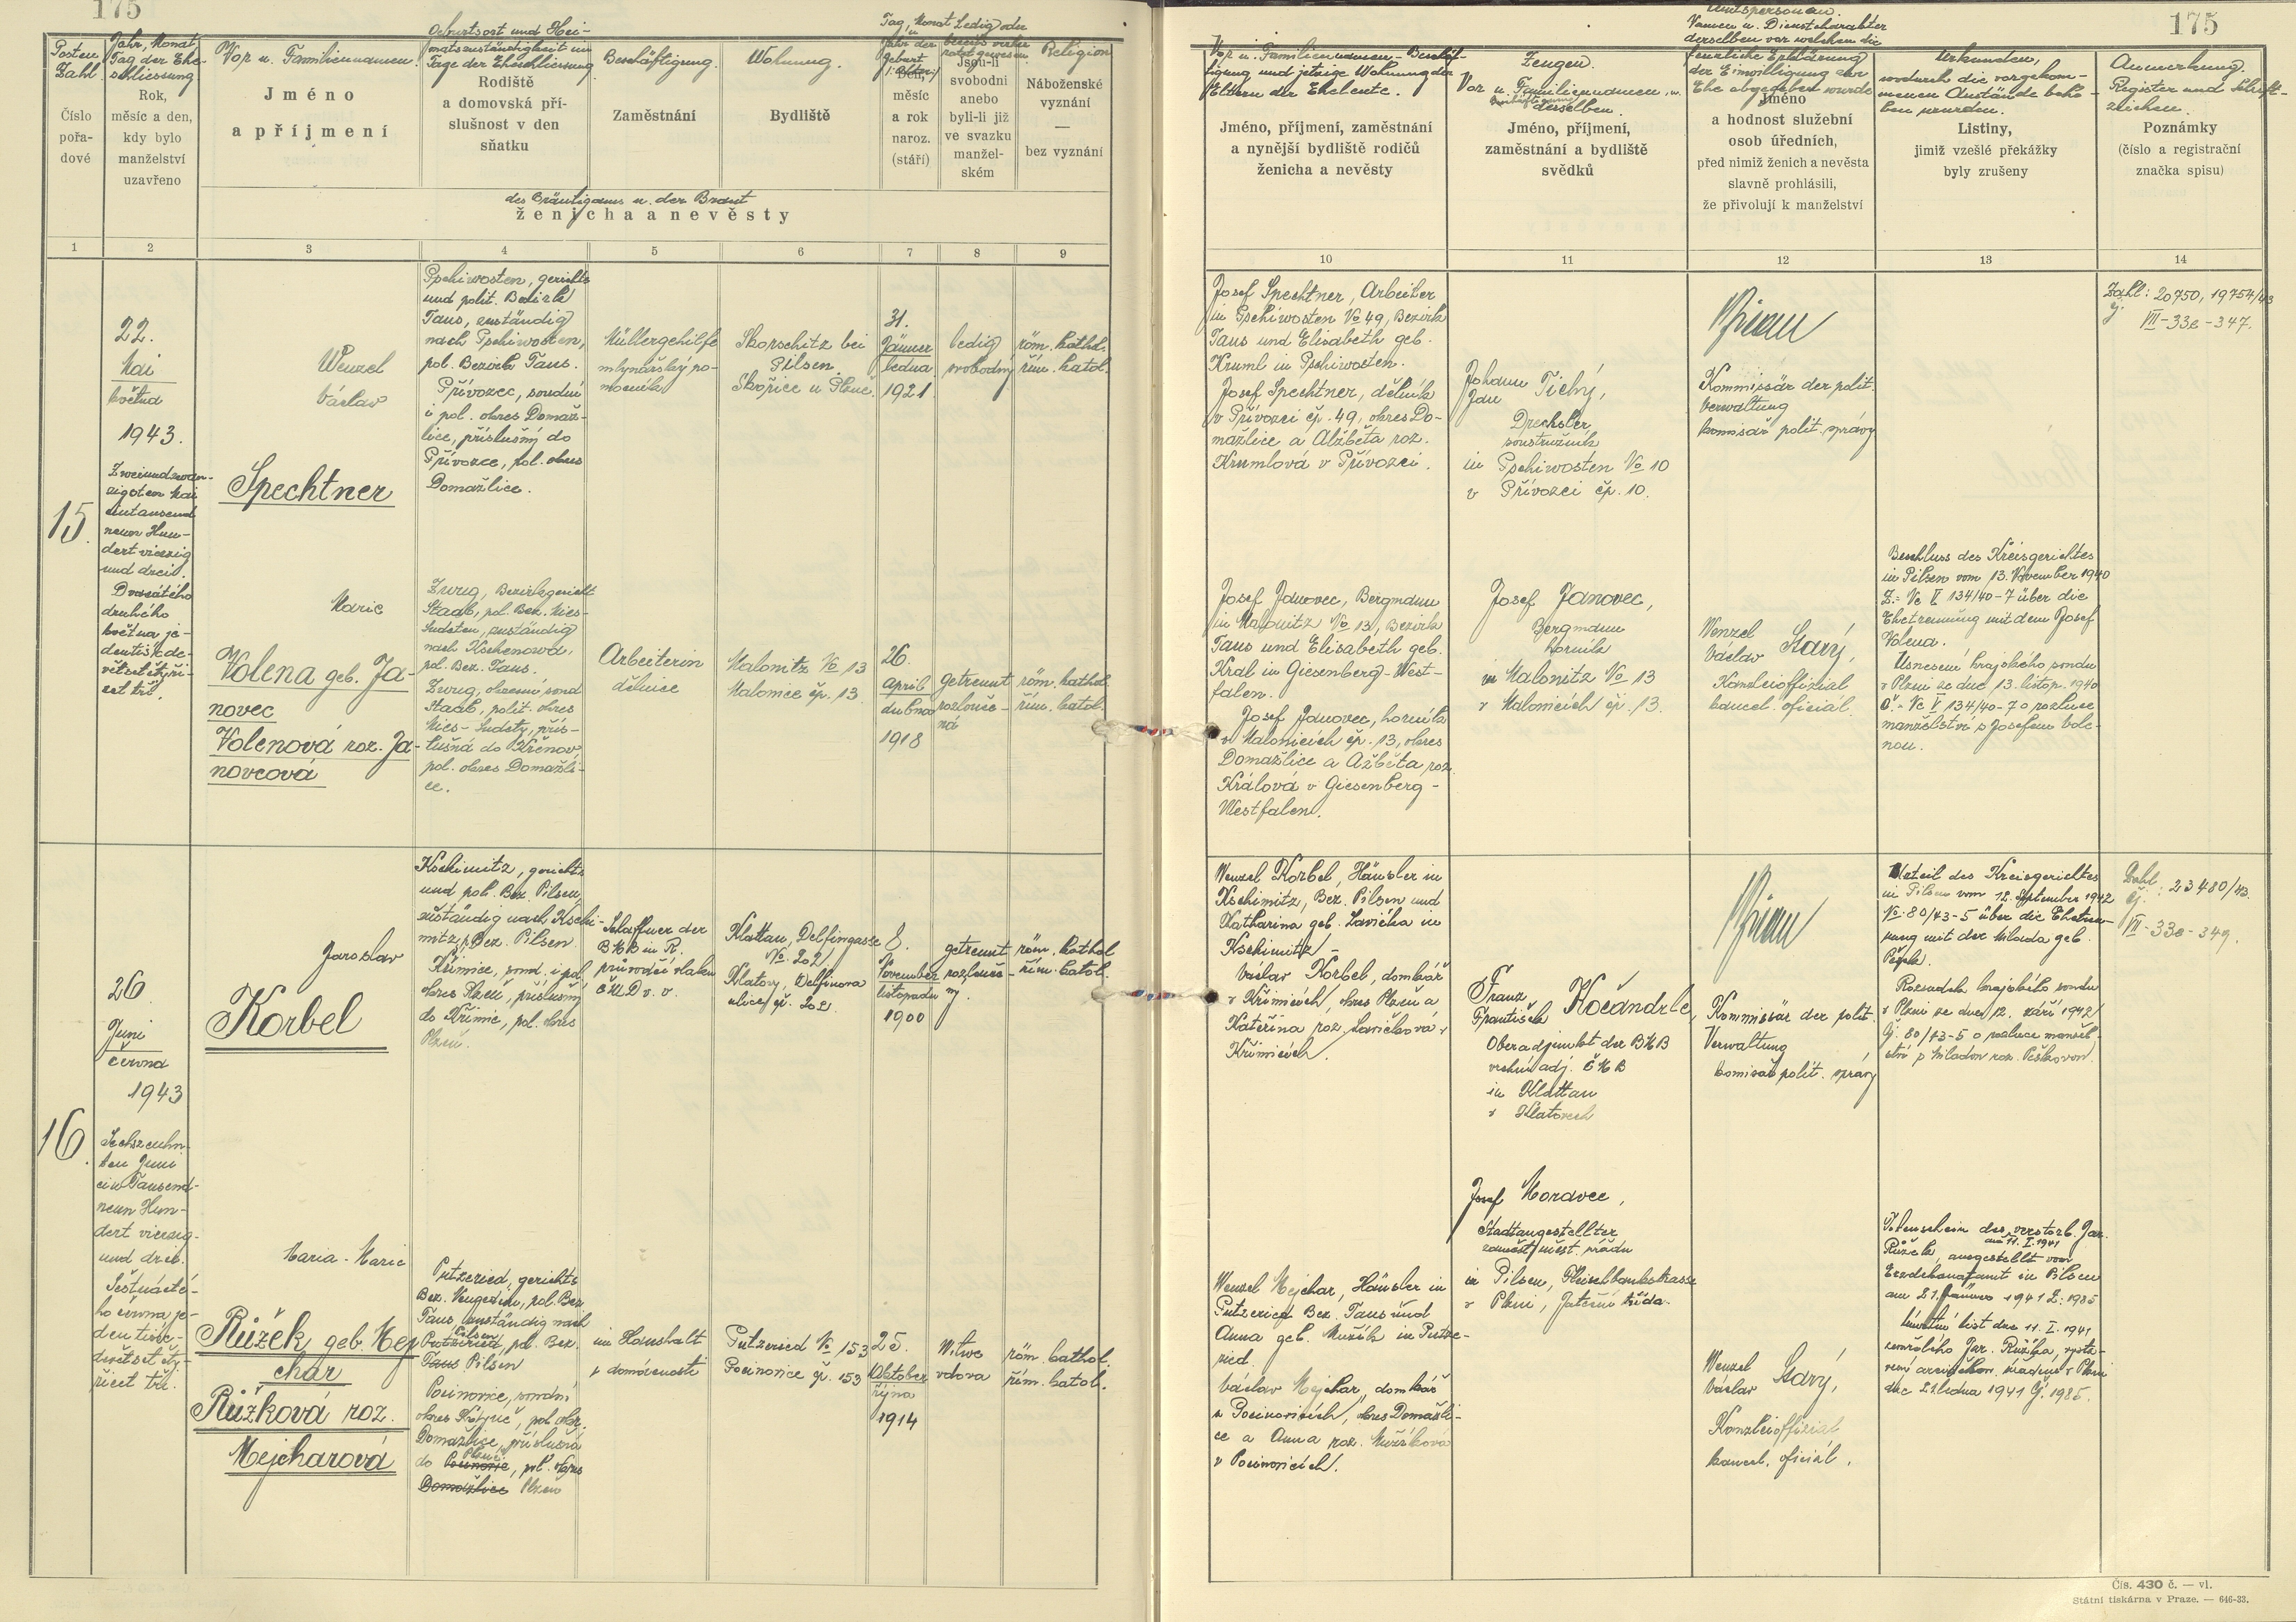 175
Posten
Zahl
Číslo
pořa-
dové
Jahr, Monat
Tag der Ehe-
schliessung
Rok,
měsíc a den,
kdy bylo
manželství
uzavřeno
Vor u. Familiennamen.
Jméno
a příjmení
Geburtsort und Hei-
matszuständigkeit im
Tage der Eheschliessung
Rodiště
a domovská pří-
slušnost v den
sňatku
Beschäftigung.
Zaměstnání
Wohnung.
Bydliště
Tag, Monat
u.
Jahr der
Geburt
(Alter)
Den,
měsíc
a rok
naroz.
(stáří)
Ledig oder
bereits verhei-
ratet gewesen
Jsou-li
svobodni
anebo
byli-li již
ve svazku
manžel-
ském
Religion
Náboženské
vyznání
—
bez vyznání
des Bräutigams u. der Braut
ženicha a nevěsty
1
2
3
4
5
6
7
8
9
15.
22.
Mai
května
1943.
Zweiundzwan-
zigsten Mai
eintausend
neun Hun-
dert vierzig
und drei.
Dvacátého
druhého
května je-
dentisíc de-
větsetčtyři-
cet tři.
Wenzel
Václav
Spechtner
Pschiwosten, gerichts
und polit. Bezirk
Taus, zuständig
nach Pschiwosten,
pol. Bezirk Taus.
Přívozec, soudní
i pol. okres Domaž-
lice, příslušný do
Přívozce, pol. okres
Domažlice.
Müllergehilfe
mlynářský po-
mocník
Skorschitz bei
Pilsen.
Skořice u Plzně.
31.
Jänner
ledna
1921
ledig
svobodný
röm. kathol.
řím. katol.
Marie
Volena geb. Ja-
novec
Volenová roz. Ja-
novcová
Zwug, Bezirksgericht
Staab, pol. Bez. Mies-
Sudeten, zuständig
nach Kschenowa,
pol. Bez. Taus.
Zwug, okresní soud
Staab, polit. okres
Mies-Sudety, přís-
lušná do Křenov,
pol. okres Domažli-
ce.
Arbeiterin
dělnice
Malonitz No 13
Malonice čp. 13
26.
April
dubna
1918
getrennt
rozlouče-
ná
röm. kathol.
řím. katol.
16.
26
Juni
června
1943
Sechszenhn-
ten Juni
ein Tausend-
neun Hun-
dert vierzig-
und drei.
Šestnácté-
ho června je-
den tisíc-
devětset čty-
řicet tři.
Jaroslav
Korbel
Kschimitz, gerichts
und pol. Bez. Pilsen,
zuständig nach Kschi-
mitz, Bez. Pilsen.
Křimice, soud. i pol.
okres Plzeň, příslušný
do Křimic, pol. okres
Plzeň.
Schaffner der
BMB in R.
průvodčí vlaku
ČMD v. v.
Klattau, Delfingasse
No. 202
Klatovy, Delfinova
ulice čp. 202
8.
November
listopadu
1900
getrennt
rozlouče-
ný.
röm. kathol
řím. katol.
Maria - Marie
Růžek geb. Mej
char
Růžková roz.
Mejcharová
Putzeried, gerichts
Bez. Neugedein, pol. Bez
Taus zuständig nach
Pilsen
Putzeried, pol. Bez.
Taus Pilsen
Pocinovice, soudní
okres Kdyně, pol. okr.
Domažlice, příslušná
Plzně
do Pocinovic, pol. okres
Domažlice Plzeň
im Haushalt
v domácnosti
Putzeried No 153
Pocinovice čp. 153
25.
Oktober
října
1914
Witwe
vdova
röm. kathol.
řím. katol.
175
Vor u. Familiennamen - Beschäf-
tigung und jetzige Wohnung der
Eltern der Eheleute.
Jméno, příjmení, zaměstnání
a nynější bydliště rodičů
ženicha a nevěsty
Zeugen.
Vor u. Familiennamen, u.
derselben.
Jméno, příjmení,
zaměstnání a bydliště
svědků
Amtspersonen.
Namen u. Dienstcharakter
derselben vor welchen die
feierliche Erklärung
der Einwilligung zur
Ehe abgegeben wurde
Jméno
a hodnost služební
osob úředních,
před nimiž ženich a nevěsta
slavně prohlásili,
že přivolují k manželství
Urkunden,
wodurch die vorgekom-
menen Anstände beho-
ben wurden.
Listiny,
jimiž vzešlé překážky
byly zrušeny
Anmerkung.
Register und Schrift-
zeichen.
Poznámky
(číslo a registrační
značka spisu)
10
11
12
13
14
Josef Spechtner, Arbeiter
in Pschiwosten No 49, Bezirk
Taus und Elisabeth geb.
Kruml in Pschiwosten.
Josef Spechtner, dělník
v Přívozci čp. 49, okres Do-
mažlice a Alžběta roz.
Krumlová v Přívozci.
Johann Tichý,
Jan
Drechsler
soustružník
in Pschiwosten No 10
v Přívozci čp. 10.
Kommissär der polit.
Verwaltung
komisař polit. správy
Zahl: 20750, 19754/43
čj.
VII-33e-347.
Josef Janovec, Bergmann
in Malonitz No 13, Bezirk
Taus und Elisabeth geb.
Kral in Giesenberg-West-
falen.
Josef Janovec, horník
v Malonicích čp. 13, okres
Domažlice a Ažběta roz.
Králová v Giesenberg-
Westfalen.
Josef Janovec,
Bergmann
horník
in Malonitz No 13
v Malonicích čp. 13.
Wenzel Starý,
Václav
Kanzleioffizial
kancel. oficiál.
Beschluss des Kreisgerichtes
in Pilsen vom 13. November 1940
Z.: Nc V 134/40-7 über die
Ehetrennung mit dem Josef
Volena.
Usnesení krajského soudu
v Plzni ze dne 13. listop. 1940
č.- Nc V 134/40-7 o rozluce
manželství s Josefem Vole-
nou.
Wenzel Korbel, Häusler in
Kschimitz, Bez. Pilsen und
Katharina geb. Lavička in
Kschimitz -
Václav Korbel, domkář
v Křimicích, okres Plzeň a
Kateřina roz. Lavičková v
Křimicích.
Franz Kočandrle,
František
Oberadjunkt der BMB
vrchní adj. ČMD
in Klattau
v Klatovech
Kommissär der polit.
Verwaltung
komisař polit. správy
Urteil des Kreisgerichtes
in Pilsen vom 12. September 1942
No. 80/43-5 über die Ehetren-
nung mit der Milada geb.
Pešek.
Rozsudek krajského soudu
v Plzni ze dne 12. září 1942
čj. 80/43-5 o rozluce manžel-
ství s Miladou roz. Peškovou.
Zahl: 23480/43.
čj.
VII-33e-349.
Josef Moravec,
Stadtangestellter
zaměst. měst. úřadu
in Pilsen, Fleischbankstrasse
v Plzni, Jateční třída.
Wenzel Mejchar, Häusler in
Putzeried Bez. Taus und
Anna geb. Mužík in Putze-
ried.
Václav Mejchar, domkář
v Pocinovicích, okres Domažli-
ce a Anna roz. Mužíková
v Pocinovicích.
Wenzel Starý,
Václav
Kanzleioffizial
kancel. oficiál.
Totenschein des verstorb. Jar.
am 11. I. 1941
Růžek, ausgestellt vom
Erzdekanatamt in Pilsen
am 21. Jänner 1941 Z: 1985
Úmrtní list dne 11. I. 1941
zemřelého Jar. Růžka, vysta-
vený arciděkan. úřadem v Plzni
dne 21. ledna 1941 čj. 1985.
Čís. 430 č. — vl.
Státní tiskárna v Praze. — 646-33.